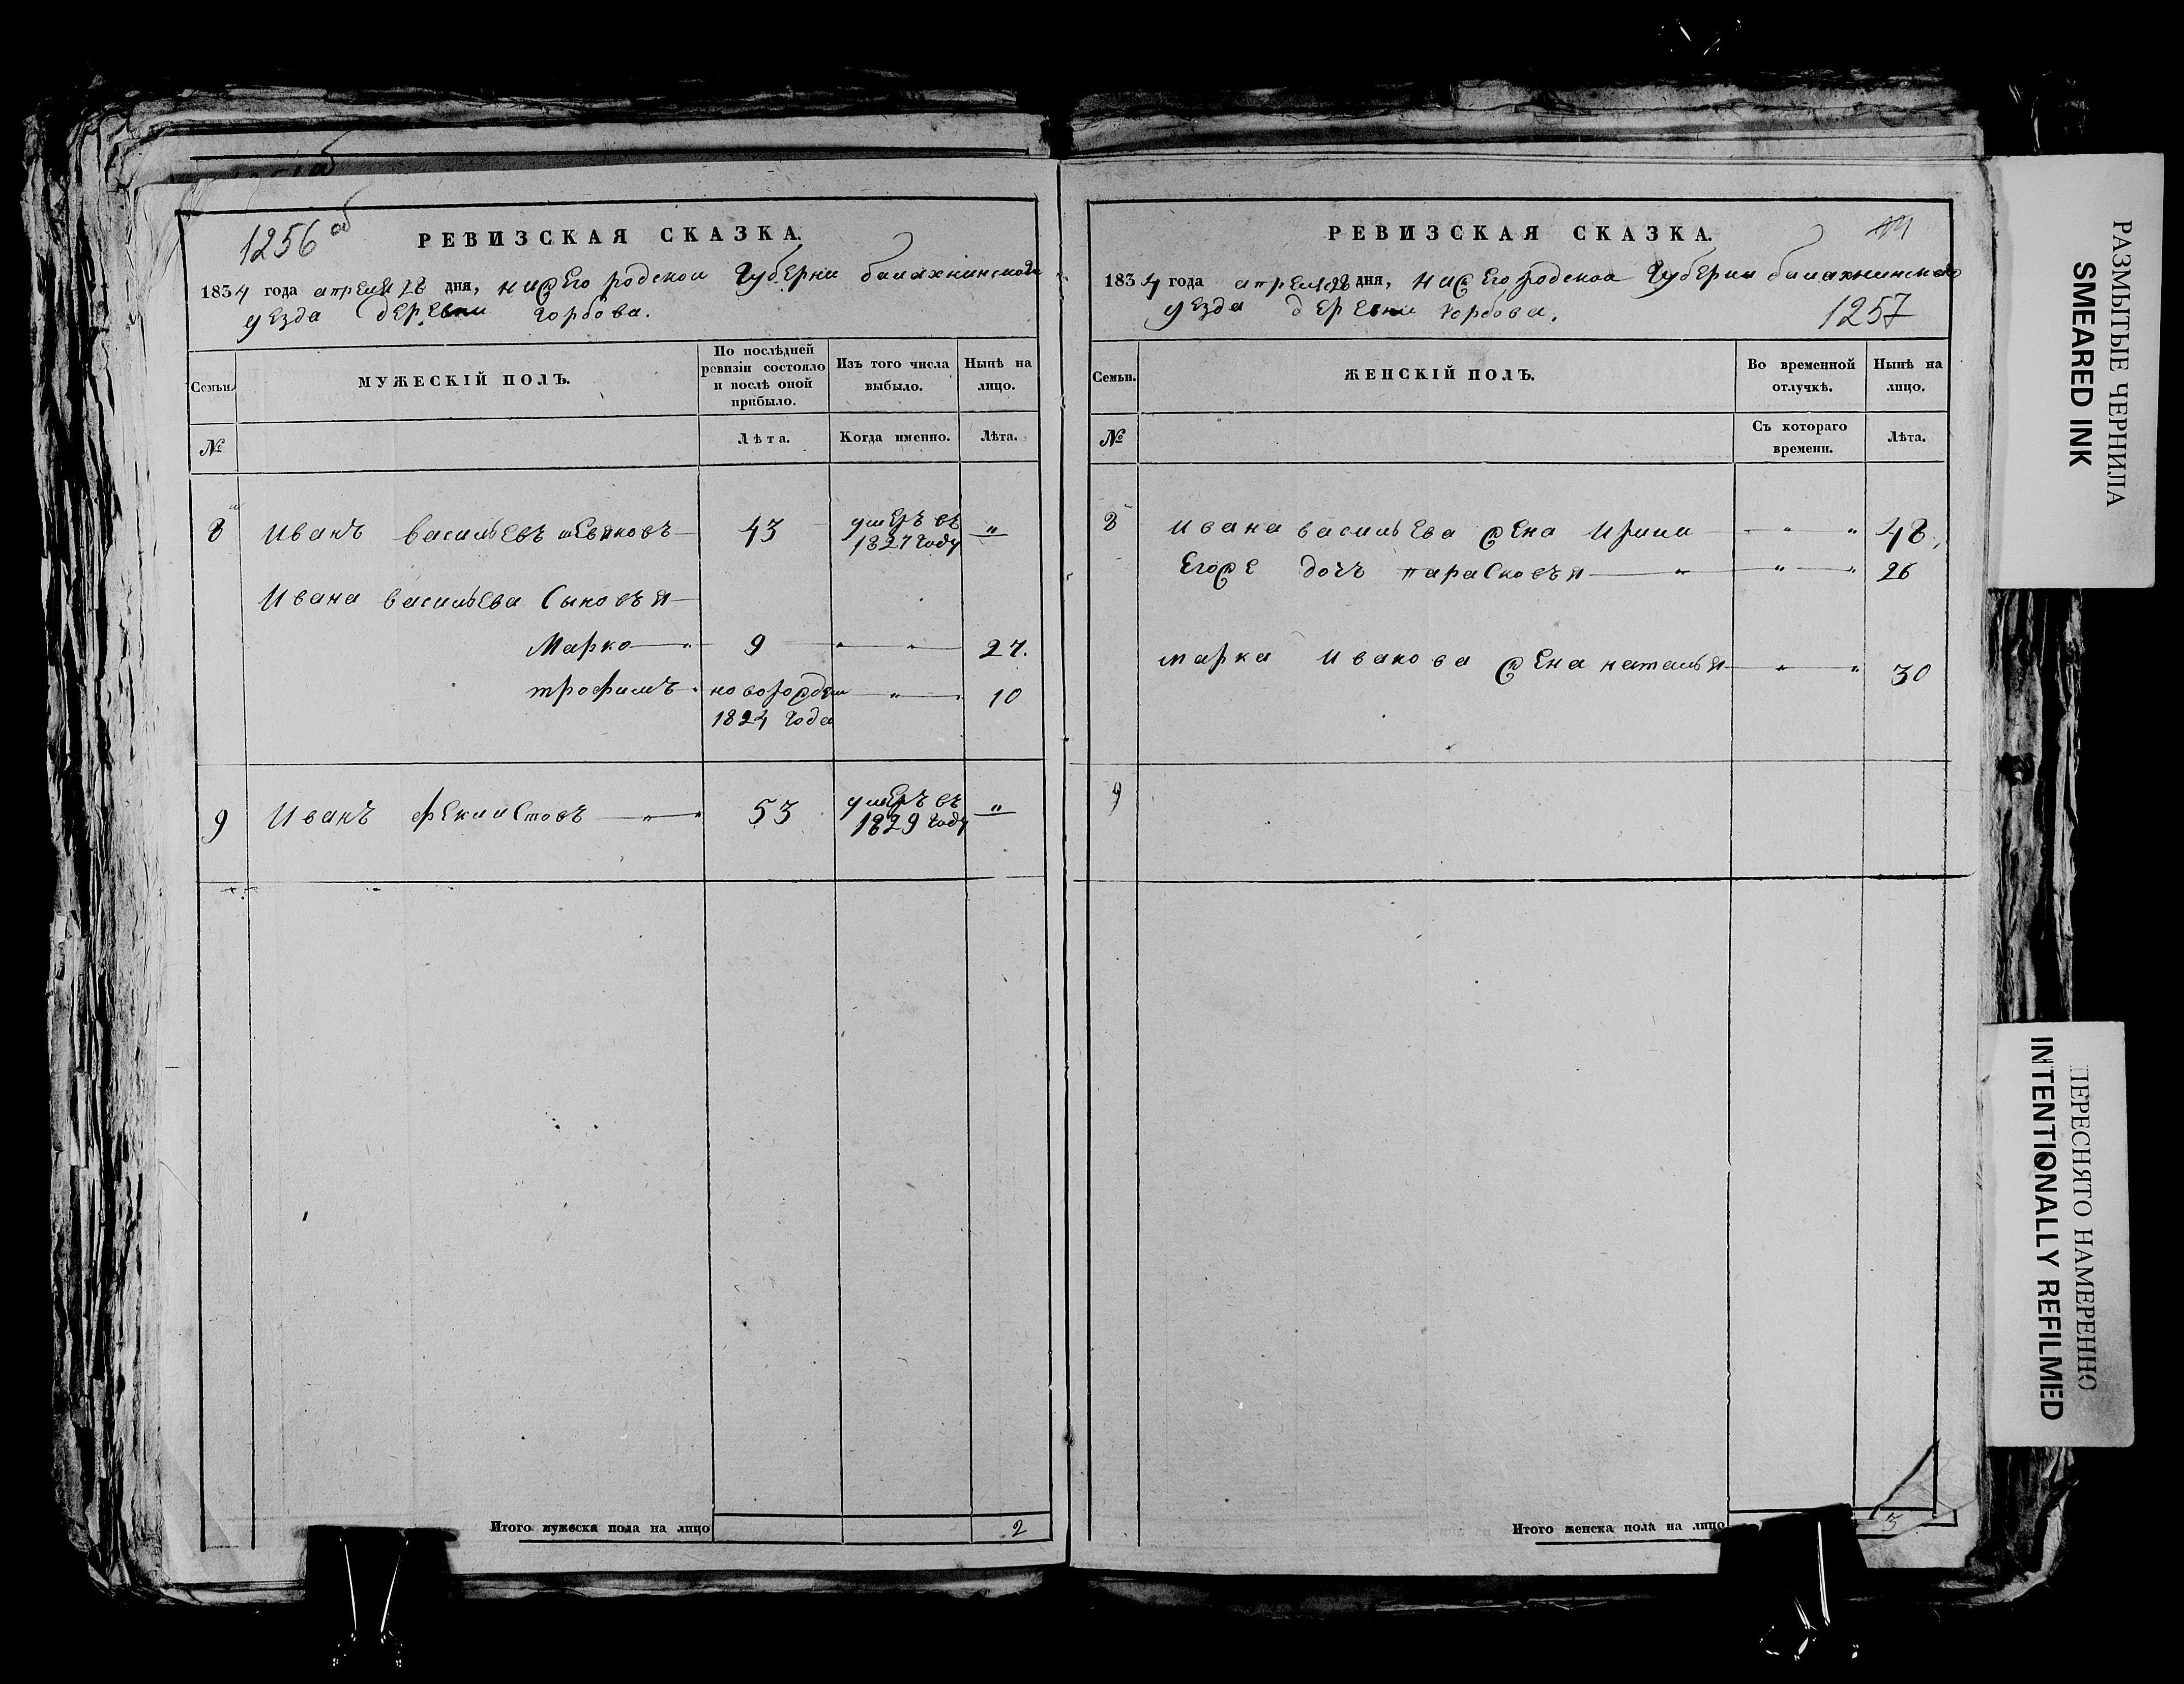 1256 об
РЕВИЗСКАЯ СКАЗКА.
1834 года апреля 28 дня, нижегородской губерни балахнинскаго
уезда деревни горбова.
Семьи.
МУЖЕСКІЙ ПОЛЪ.
По послѣдней ревизіи состояло и послѣ оной прибыло.
Изъ того числа выбыло.
Нынѣ на лицо.
№
Лѣта.
Когда именно.
Лѣта.
8 Иванъ васильевъ 43 умеръ въ 1827 году "
Ивана васильева сыновья
Марко " 9 " " 27.
трофимъ новорожден 1824 года " 10
9 Иванъ феклистовъ " 53 умеръ въ 1829 году "
Итого мужеска пола на лицо 2
РЕВИЗСКАЯ СКАЗКА.
1834 года апреля 28 дня, нижегородской губерни балахнинскаго
уезда деревни горбова.
1257
Семьи.
ЖЕНСКІЙ ПОЛЪ.
Во временной отлучкѣ.
Нынѣ на лицо.
№
Съ котораго времени.
Лѣта.
8 Ивана васильева жена Ирина " " 48
Егоже дочь парасковья " " " 26
марка Иванова жена наталья " " 30
9
Итого женска пола на лицо 3
РАЗМЫТЫЕ ЧЕРНИЛА
SMEARED INK
ПЕРЕСНЯТО НАМЕРЕННО
INTENTIONALLY REFILMED